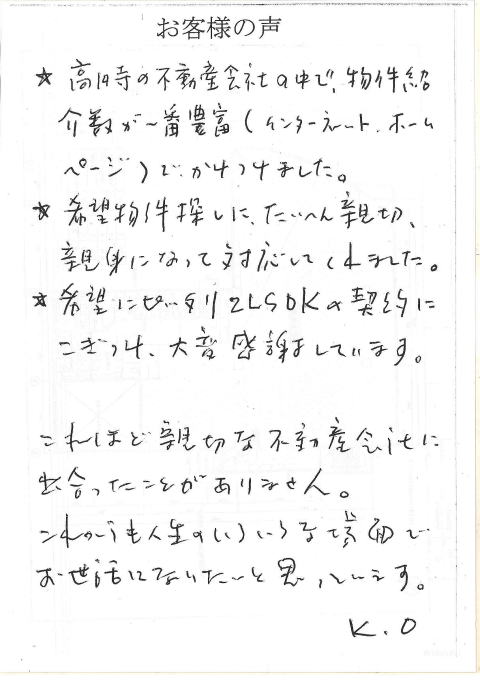 お客様の声
☆ 高円寺の不動産会社の中で、物件紹
介数が一番豊富(インターネット、ホーム
ページ)で、かけつけました。
☆ 希望物件探しに、たいへん親切、
親身になって対応してくれました。
☆ 希望にぴったり2LSDKの契約に
こぎつけ、大変感謝しています。
これほど親切な不動産会社に
出合ったことがありません。
これからも人生のいろいろな場面で
お世話になりたいと思っています。
K.O